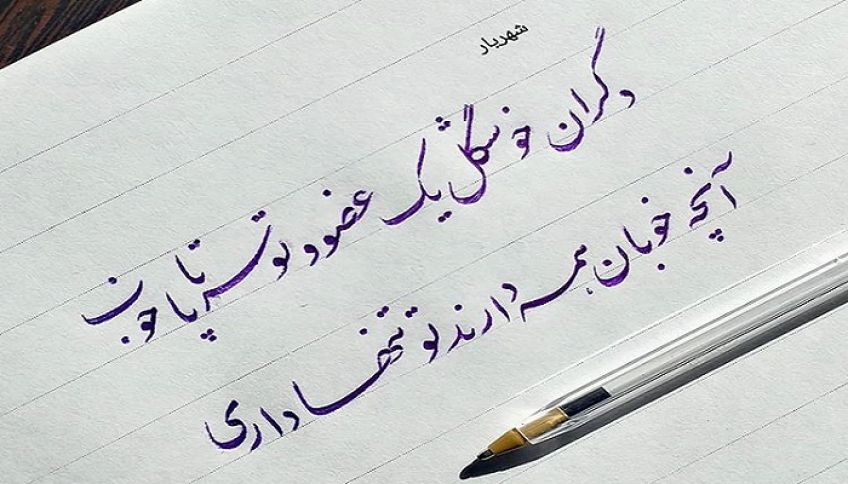 شهریار
دگران خوشگل یک عضو و تو سر تا پا خوب
آنچه خوبان همه دارند تو تنها داری